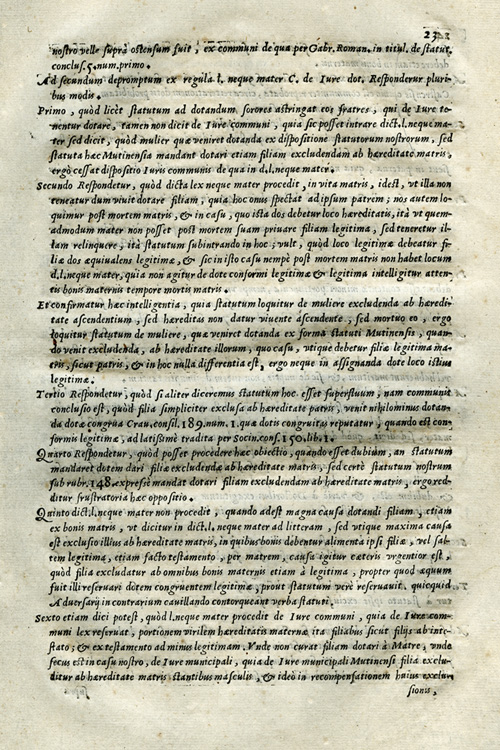 23
nostro velle suprà ostensum fuit, ex communi de qua per Gabr. Roman. in titul. de statut.
conclus. 5. num. primo.
Ad secundum depromptum ex regula l. neque mater C. de Iure dot. Respondetur pluri-
bus modis.
Primo, quòd licèt statutum ad dotandum sorores astringat eos fratres, qui de Iure te-
nentur dotare, tamen non dicit de Iure communi, quia sic posset intrare dict. l. neque ma-
ter sed dicit, quòd mulier quæ veniret dotanda ex dispositione statutorum nostrorum, sed
statuta hæc Mutinensia mandant dotari etiam filiam excludendam ab hæreditate matris,
ergo cessat dispositio Iuris communis de qua in d. l. neque mater.
Secundo Respondetur, quòd dicta lex neque mater procedit, in vita matris, idest, vt illa non
teneatur dum viuit dotare filiam, quia hoc onus spectat ad ipsum patrem; nos autem lo-
quimur post mortem matris, & in casu, quo ista dos debetur loco hæreditatis, ità vt quem-
admodum mater non posset post mortem suam priuare filiam legitima, sed teneretur il-
lam relinquere, ità statutum subintrando in hoc; vult, quòd loco legitimæ debeatur fi-
liæ dos æquiualens legitimæ, & sic in isto casu nempè post mortem matris non habet locum
d. l. neque mater, quia non agitur de dote conformi legitimæ & legitima intelligitur atten-
tis bonis maternis tempore mortis matris.
Et confirmatur hæc intelligentia, quia statutum loquitur de muliere excludenda ab hæredi-
tate ascendentium, sed hæreditas non datur viuente ascendente, sed mortuo eo, ergo
loquitur statutum de muliere, quæ veniret dotanda ex forma statuti Mutinensis, quan-
do venit excludenda, ab hæreditate illorum, quo casu, vtique debetur filiæ legitima ma-
tris, sicut patris, & in hoc nulla differentia est, ergo neque in assignanda dote loco istius
legitimæ.
Tertio Respondetur, quòd si aliter diceremus statutum hoc esset superfluum, nam communit
conclusio est, quòd filia simpliciter exclusa ab hæreditate patris, venit nihilominus dotan-
da dote congrua Crau. consil. 189. num. 1. quæ dotis congruitas reputatur, quando est con-
formis legitimæ, ad latissimè tradita per Socin. cons. 150. lib. 1.
Quarto Respondetur, quòd posset procedere hæc obiectio, quando esset dubium, an statutum
mandaret dotem dari filiæ excludendæ ab hæreditate matris, sed certè statutum nostrum
sub rubr. 148. expressè mandat dotari filiam excludendam ab hæreditate matris, ergo red-
ditur frustratoria hæc oppositio.
Quinto dict. l. neque mater non procedit, quando adest magna causa dotandi filiam, etiam
ex bonis matris, vt dicitur in dict. l. neque mater ad litteram, sed vtique maxima causa
est exclusio illius ab hæreditate matris, in quibus bonis debentur alimenta ipsi filiæ, vel sal-
tem legitima, etiam facto testamento, per matrem, causa igitur cæteris vrgentior est,
quòd filia excludatur ab omnibus bonis maternis etiam à legitima, propter quod æquum
fuit illi reseruari dotem congruentem legitimæ, prout statutum verè reseruauit. quicquid
Aduersarij in contrarium cauillando contorqueant verba statuti.
Sexto etiam dici potest, quòd l. neque mater procedet de Iure communi, quia de Iure com-
muni lex reseruat, portionem virilem hæreditatis maternæ ità filiabus sicut filijs ab inte-
stato; & ex testamento ad minus legitimam. Vnde non curat filiam dotari à Matre, vnde
secus est in casu nostro, de Iure municipali, quia de Iure municipali Mutinensi filia exclu-
ditur ab hæreditate matris stantibus masculis, & ideò in recompensationem huius exclu-
sionis,